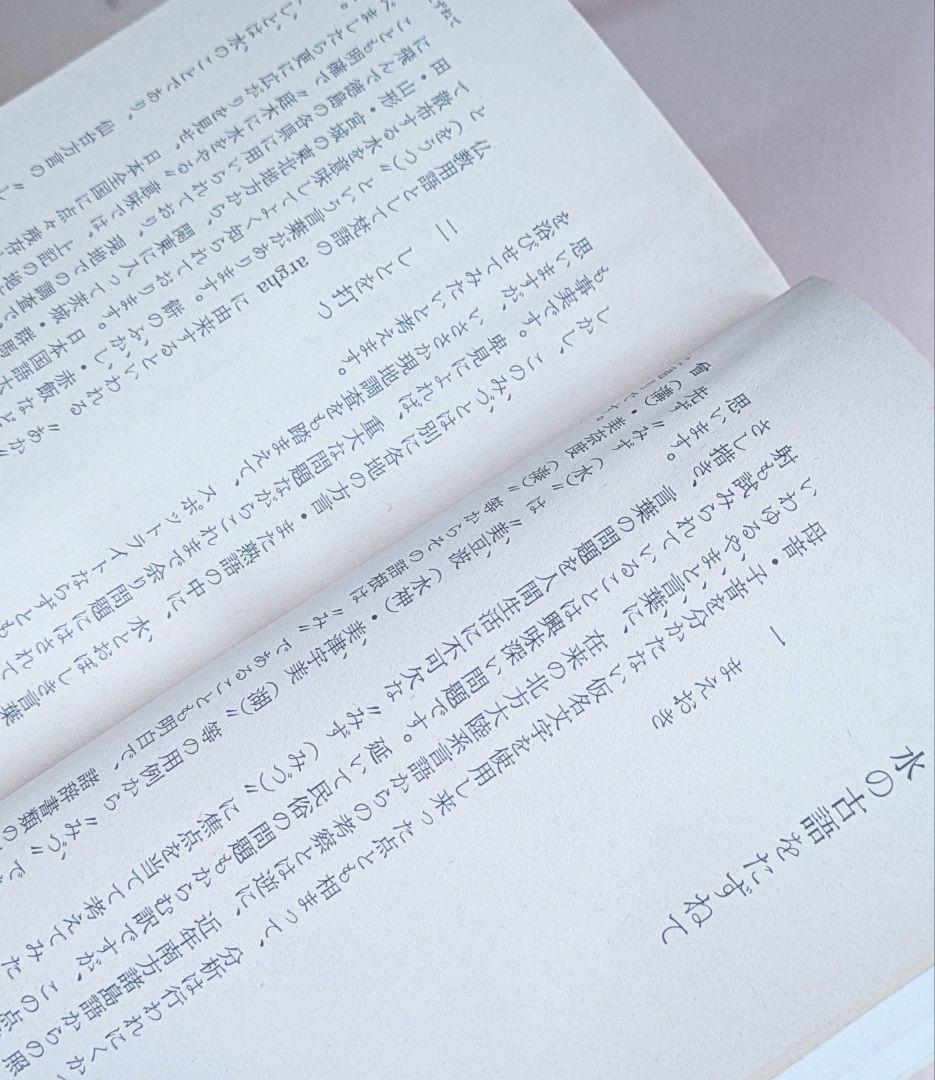 水の古語をたずねて
一 まえおき
母音・子音を分かたない仮名文字を使用し来った点とも相まって、分析は行われにくか
いわゆるやまと言葉に、在来の北方大陸系言語からの考察とは逆に、近年南方諸島語からの照
射も試みられていることは興味深い問題です。延いて民俗の問題もからむ訳ですが、この点
さし措き、言葉の問題を人間生活に不可欠な〝みず（みづ）〟に焦点を当てて考えてみた
思います。
先ず〝みず（水）〟は〝美豆波（水神）・美津宇美（湖）〟等の用例から〝みづ〟で
曾（溝）・美奈度（湊）〟等からその語根は〝み〟であることも明白で、諸辞書類の
です。
しかし、このみづとは別に各地の方言・また熟語の中に、水とおぼしき言葉
も事実です。卑見によれば、重大な問題ながらこれまで余り問題にはされて
思いますが、いささか現地調査をも踏まえて、スポットライトならずとも
を浴びせてみたいと考えます。
二 しとを打つ
仏教用語として梵語の argha に由来するといわれる〝あか
と（をうつ）〟という言葉があります。餅のふかし・赤飯など
て散布する水を意味してよく知られております。日本国語大
田・山形・宮城の東北地方から、関東に入って茨城・群馬
に飛んで徳島の各県に用いられており、実地での調査で
ことも明確で〝庭木に水をやる〟意味では、上記の地
べましたら更に広がりを見せ、日本全国に点々残存
し、とは、水のことであり、仙台方言の〝し
ずねて